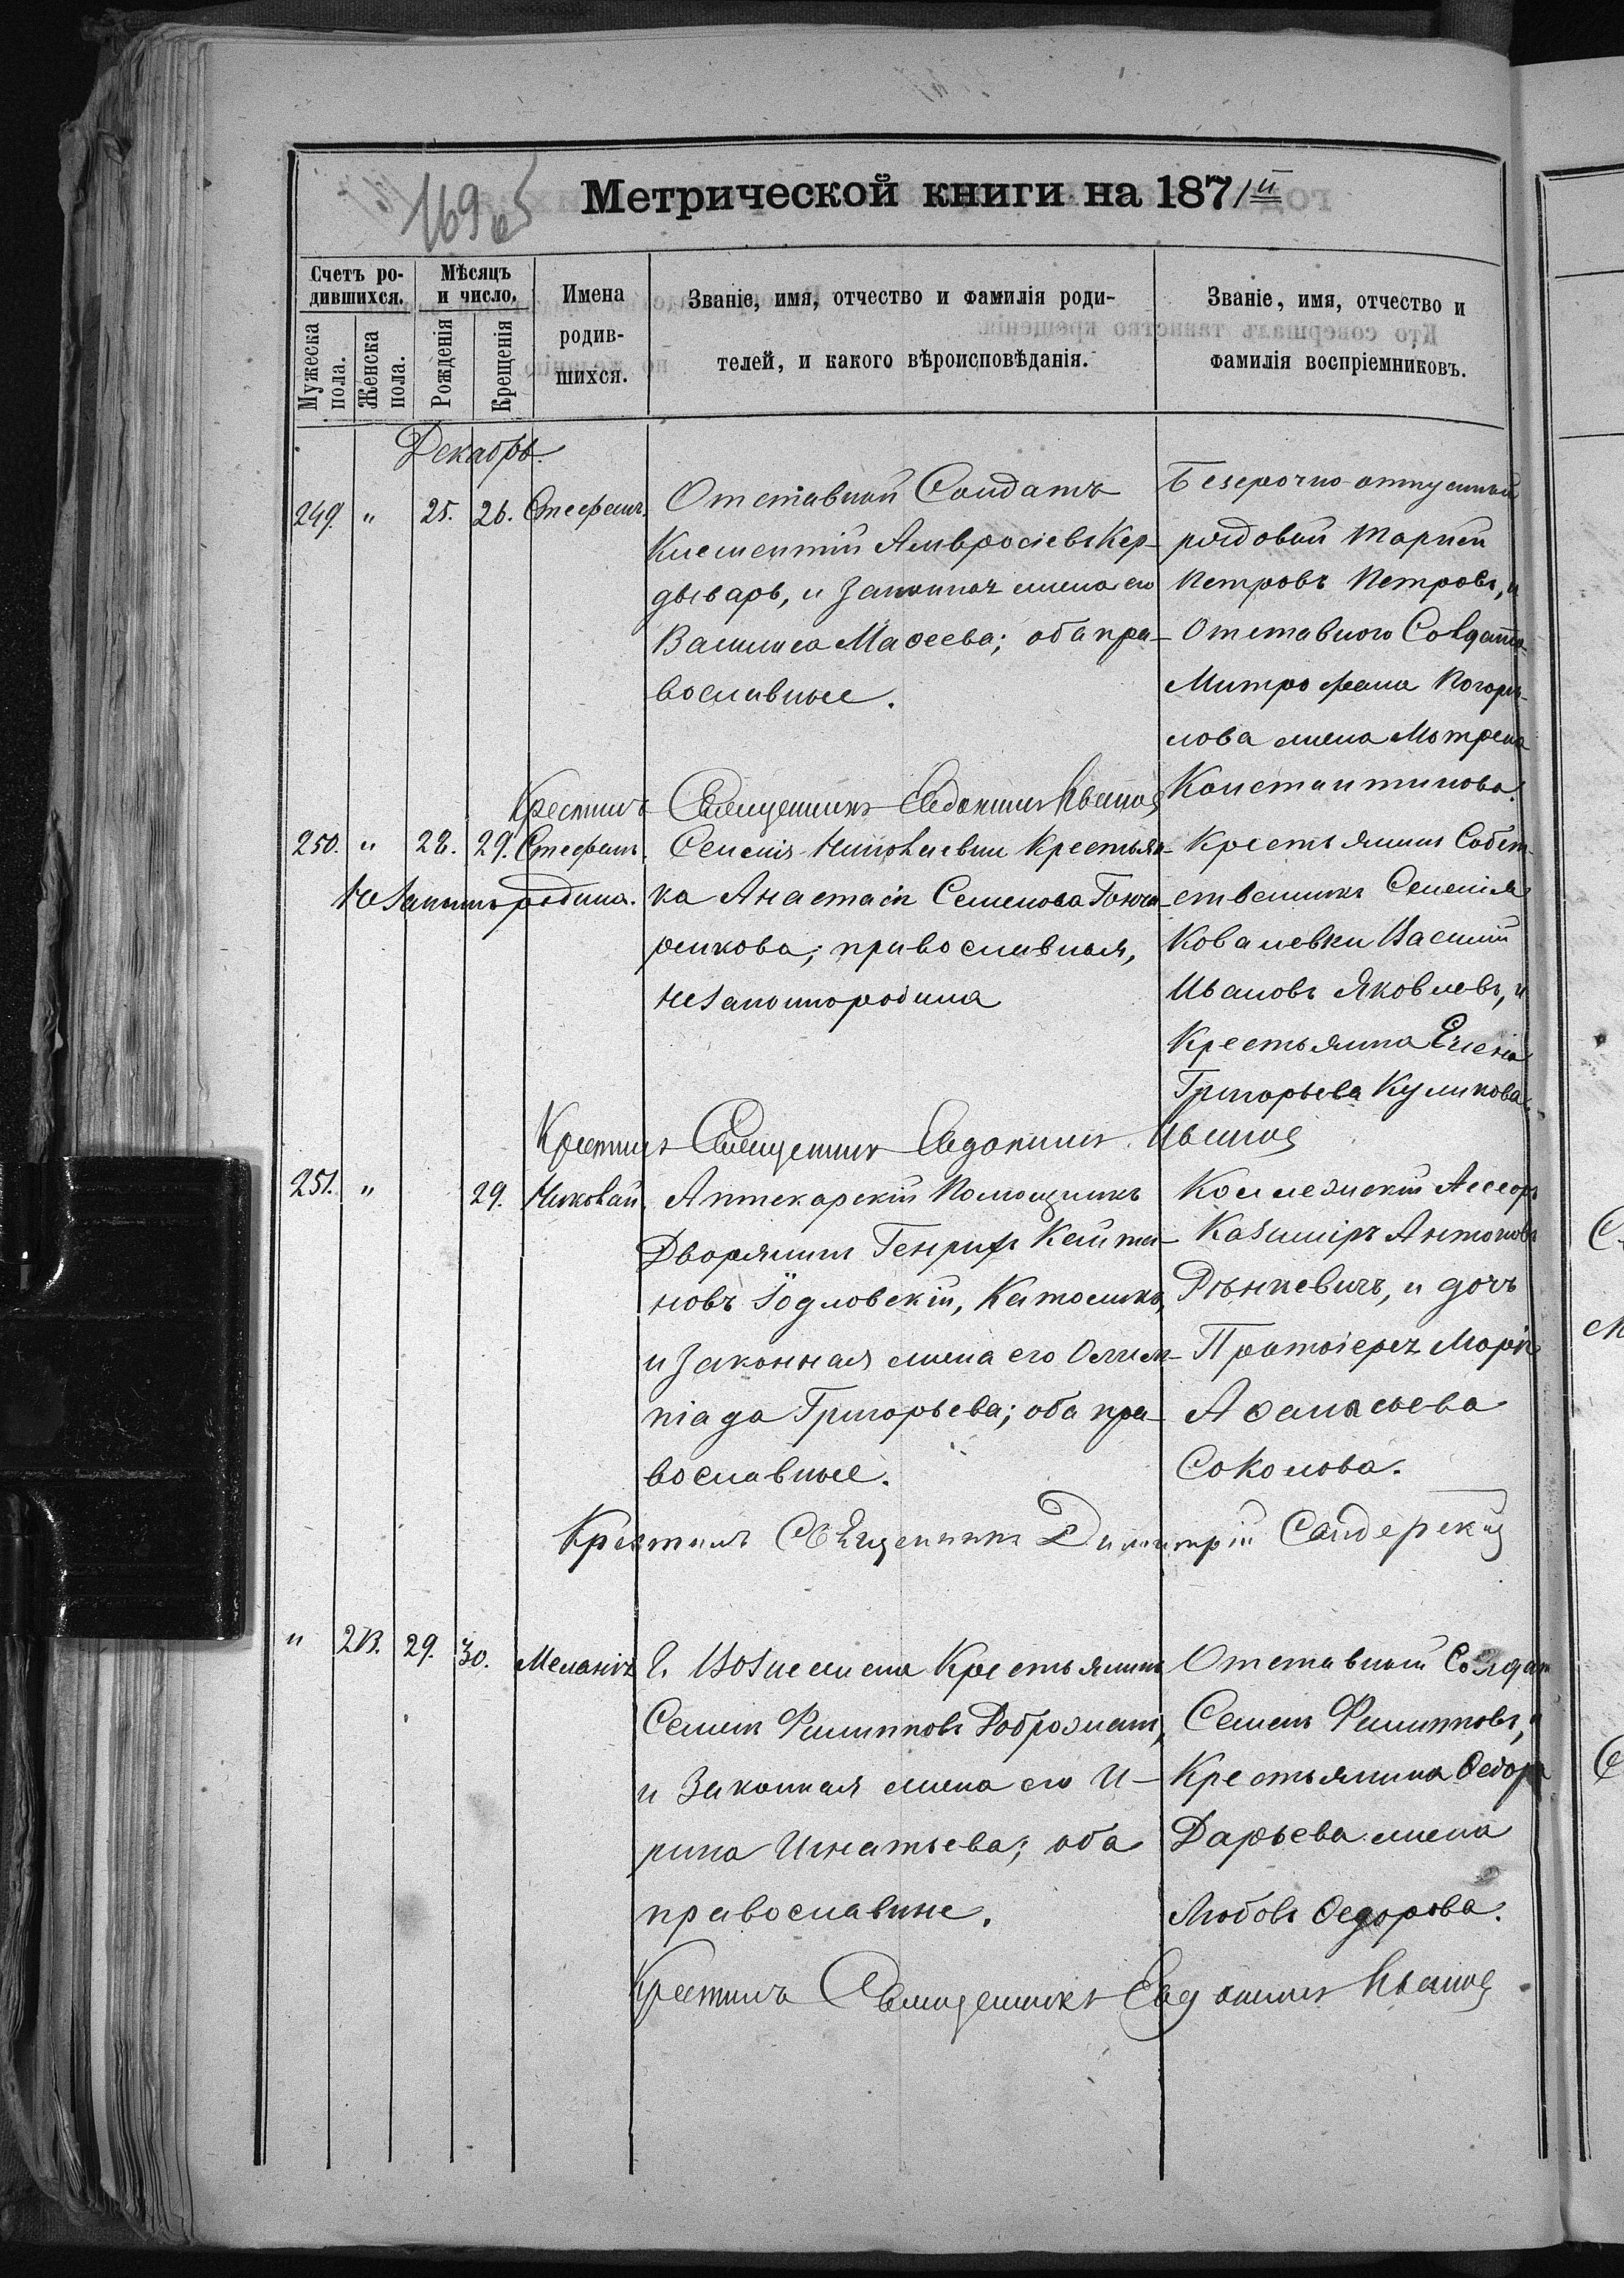 169
Метрической книги на 1871й
Счетъ ро-
дившихся.
Мѣсяцъ
и число.
Имена
родив-
шихся.
Званіе, имя, отчество и фамилія роди-
телей, и какого вѣроисповѣданія.
Званіе, имя, отчество и
фамилія воспріемниковъ.
Мужеска
пола.
Женска
пола.
Рожденія
Крещенія
Декабрь.
249. " 25. 26. Стефанъ.
Отставной Солдатъ
Климентій Амвросіевъ Кер-
дываръ, и законная жена его
Васились Маѳеева; оба пра-
вославные.
Безсрочно-отпускной
рядовой
Петровъ Петровъ, и
Отставного Солдата
Митрофана Погори-
лова жена Матрена
Константинова.
Крестилъ Священникъ Евдокимъ Ивановъ
250. " 28. 29. Стефанъ.
Незаконнорожден.
Селенія Николаевки Крестьян-
ка Анастасія Семенова Гонча-
ренкова; православная,
незаконнорождена
Крестьянинъ Собст-
венникъ Селенія
Ковалевки Василій
Ивановъ Яковлевъ, и
Крестьянка Елена
Григорьева Куликова.
Крестилъ Священникъ Евдокимъ Ивановъ
251. " 29. Николай
Аптекарскій Помощникъ
Дворянинъ Генрихъ Каита-
новъ Іодловскій, Католикъ,
и Законная жена его Олим-
піада Григорьева; оба пра-
вославные.
Коллежскій Ассесоръ
Казиміръ Антоновъ
Рѣнкевичъ, и дочь
Протоіерея Марія
Аѳанасьева
Соколова.
Крестилъ Священникъ Димитрій
" 213. 29. 30. Меланія
Г. Вознесенска Крестьянинъ
Семенъ Филипповъ Доброжанъ,
и Законная жена его И-
рина Игнатьева; оба
православные.
Отставной Солдатъ
Семенъ Филипповъ, и
Крестьянина Ѳедора
Дарьева жена
Любовь Ѳедорова.
Крестилъ Священникъ Евдокимъ Ивановъ